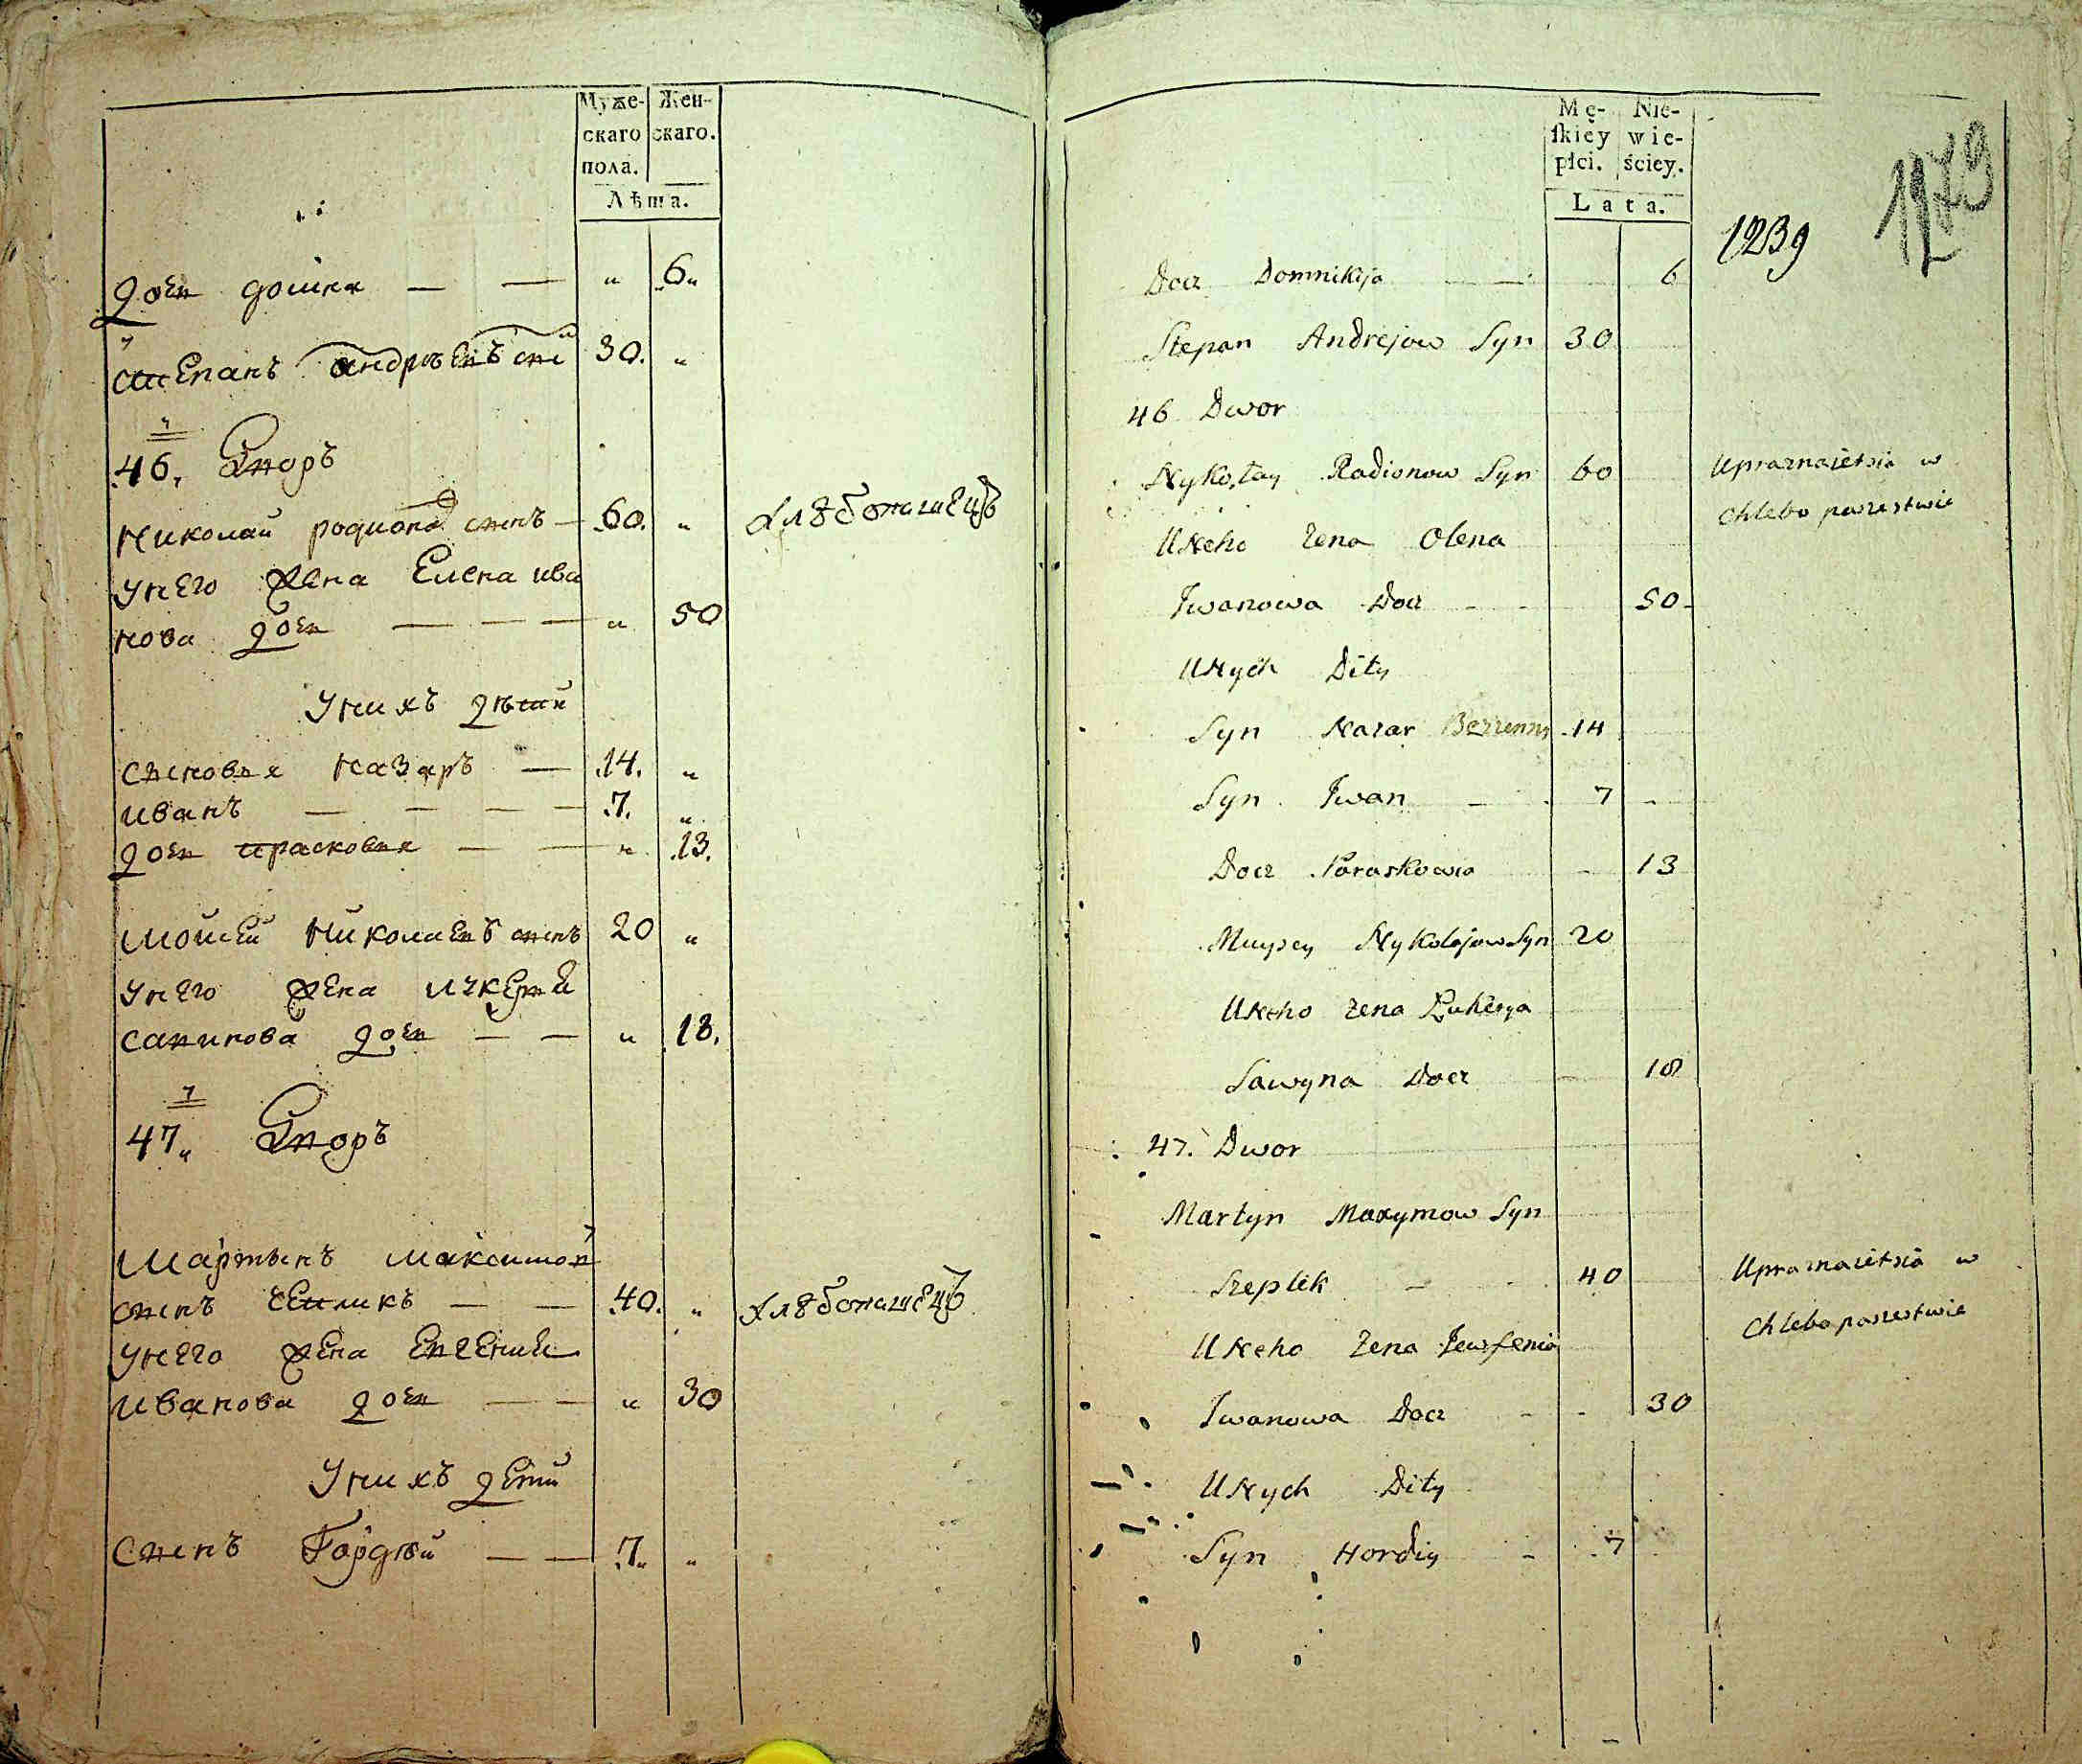 Муже-
скаго
пола.
Жен-
скаго.
Лѣта.
дочь домна — — " 6"
степанъ андрѣевъ снъ 30. "
46, Дворъ
николай родионовъ сынъ — 60. " хлѣбопашецъ
унего жена Елена ива
нова дочь — — — " 50
Унихъ дѣти
сыновья назаръ — 14. "
иванъ — — — — 7. "
дочь прасковья — — " .13.
мойсей николаевъ сынъ 20 "
унего жена лукерия
савинова дочь — — " .18.
47" Дворъ
мартынъ максимов
сынъ чепликъ — — .40. " хлѣбопашецъ
унего жена Евгения
иванова дочь — — " 30
Унихъ дети
сынъ Гордѣй — — .7" "
Mę-
ſkiey
płci.
Nie-
wie-
ściey.
Lata.
1239
Docz Domnikija — — 6
Stepan Andrejow Syn 30
46 Dwor
Nykołay Radionow Syn 60 Upraznaietsia w
Chlebo paszestwie
UNeho Zena Olena
Jwanowa Docz - - 50-
UNych Dity
Syn Nazar Bezzenny 14
Syn Jwan - - 7 -
Docz Paraskowia - 13
Muysey Nykolajow Syn 20
UNeho Zena Łukerya
Sawyna Docz - 18
47. Dwor
Martyn Maxymow Syn
Szeplik - - 40 Upraznaietsia w
Chlebo paszestwie
UNeho Zena Jewfenia
Jwanowa Docz - - 30
UNych Dity
Syn Hordiy - 7